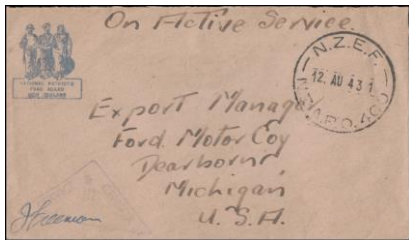 On Active Service.
NATIONAL PATRIOTIC
FUND BOARD
NEW ZEALAND
N.Z.E.F.
12 AU 43 1
N.Z.A.P.O. 400
Export Manager
Ford Motor Coy
Dearborn,
Michigan
U.S.A.
JFreeman